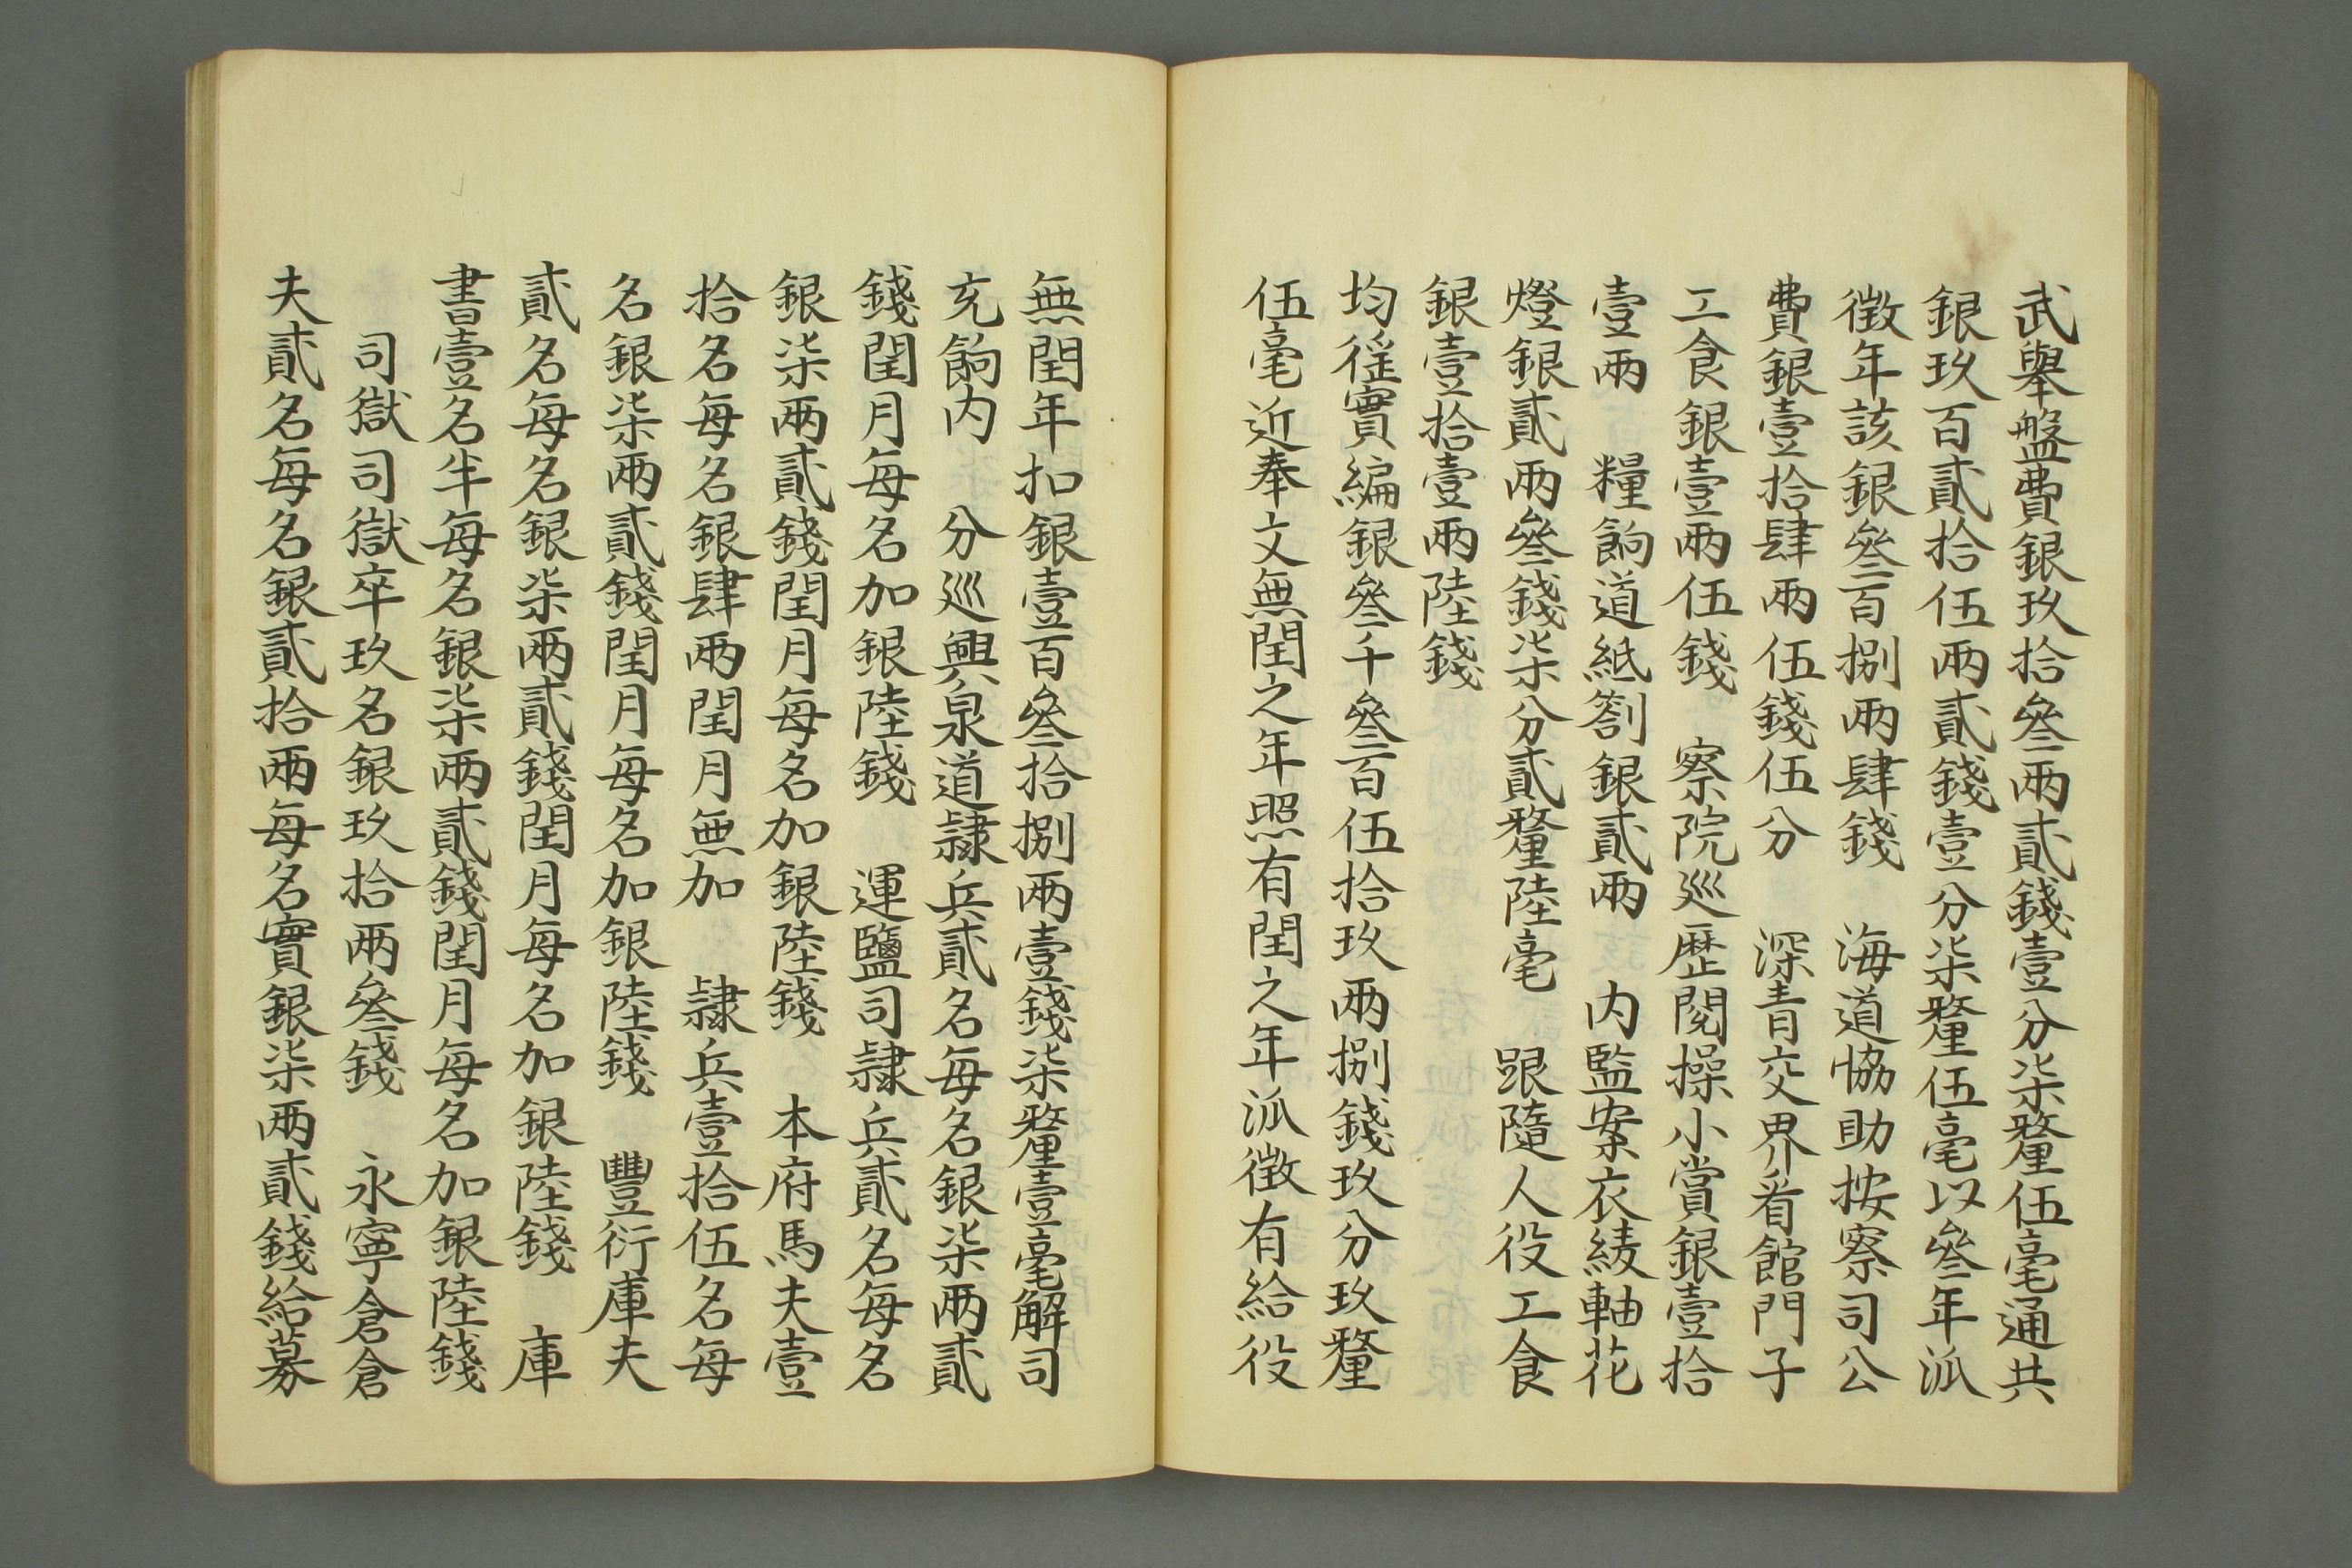 武舉盤費銀玖拾叄兩貳錢壹分柒釐伍毫通共
銀玖百貳拾伍兩貳錢壹分柒釐伍毫以叄年泒
徵年該銀叄百捌兩肆錢　海道恊助按察司公
費銀壹拾肆兩伍錢伍分　深青交界看館門子
工食銀壹兩伍錢　察院巡歷閱操小賞銀壹拾
壹兩　糧餉道紙劄銀貳兩　内監案衣綾軸花
燈銀貳兩叄錢柒分貳釐陸毫　跟隨人役工食
銀壹拾壹兩陸錢
均徭實編銀叄千叄百伍拾玖兩捌錢玖分玖釐
伍毫近奉文無閏之年照有閏之年泒徵有給役
無閏年扣銀壹百叄拾捌兩壹錢柒釐壹毫解司
充餉内　分巡興泉道隷兵貳名每名銀柒兩貳
錢閏月每名加銀陸錢　運鹽司隷兵貳名每名
銀柒兩貳錢閏月每名加銀陸錢　本府馬夫壹
拾名每名銀肆兩閏月無加　隷兵壹拾伍名每
名銀柒兩貳錢閏月每名加銀陸錢　豐衍庫夫
貳名每名銀柒兩貳錢閏月每名加銀陸錢　庫
書壹名半每名銀柒兩貳錢閏月每名加銀陸錢
司獄司獄卒玖名銀玖拾兩叄錢　永寧倉倉
夫貳名每名銀貳拾兩每名實銀柒兩貳錢給募